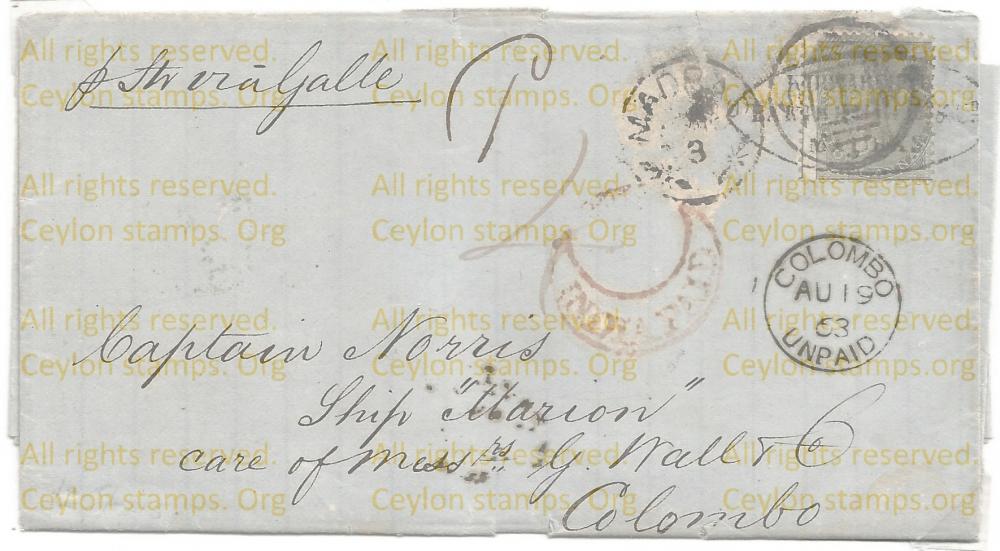 All rights reserved. All rights reserved. All rights reserved.
Ceylon stamps. Org Ceylon stamps. Org Ceylon stamps. Org
p Str via Galle
MADRAS
3
All rights reserved. All rights reserved. All rights reserved.
Ceylon stamps. Org Ceylon stamps. Org Ceylon stamps. Org
INDIA PAID
COLOMBO
AU 19
63
UNPAID
All rights reserved. All rights reserved. All rights reserved.
Ceylon stamps. Org Ceylon stamps. Org Ceylon stamps. Org
Captain Norris
Ship "Marion"
care of Messrs G. Wall & C
Colombo
All rights reserved. All rights reserved. All rights reserved.
Ceylon stamps. Org Ceylon stamps. Org Ceylon stamps. Org